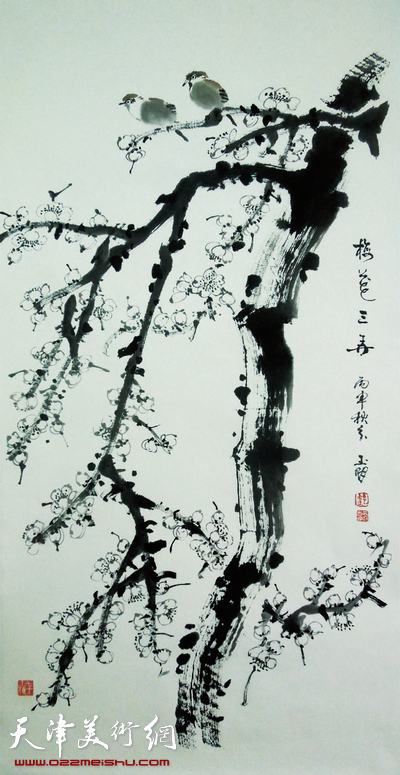 梅花三弄
丙申秋月
玉
天津美術網
www.022meishu.com